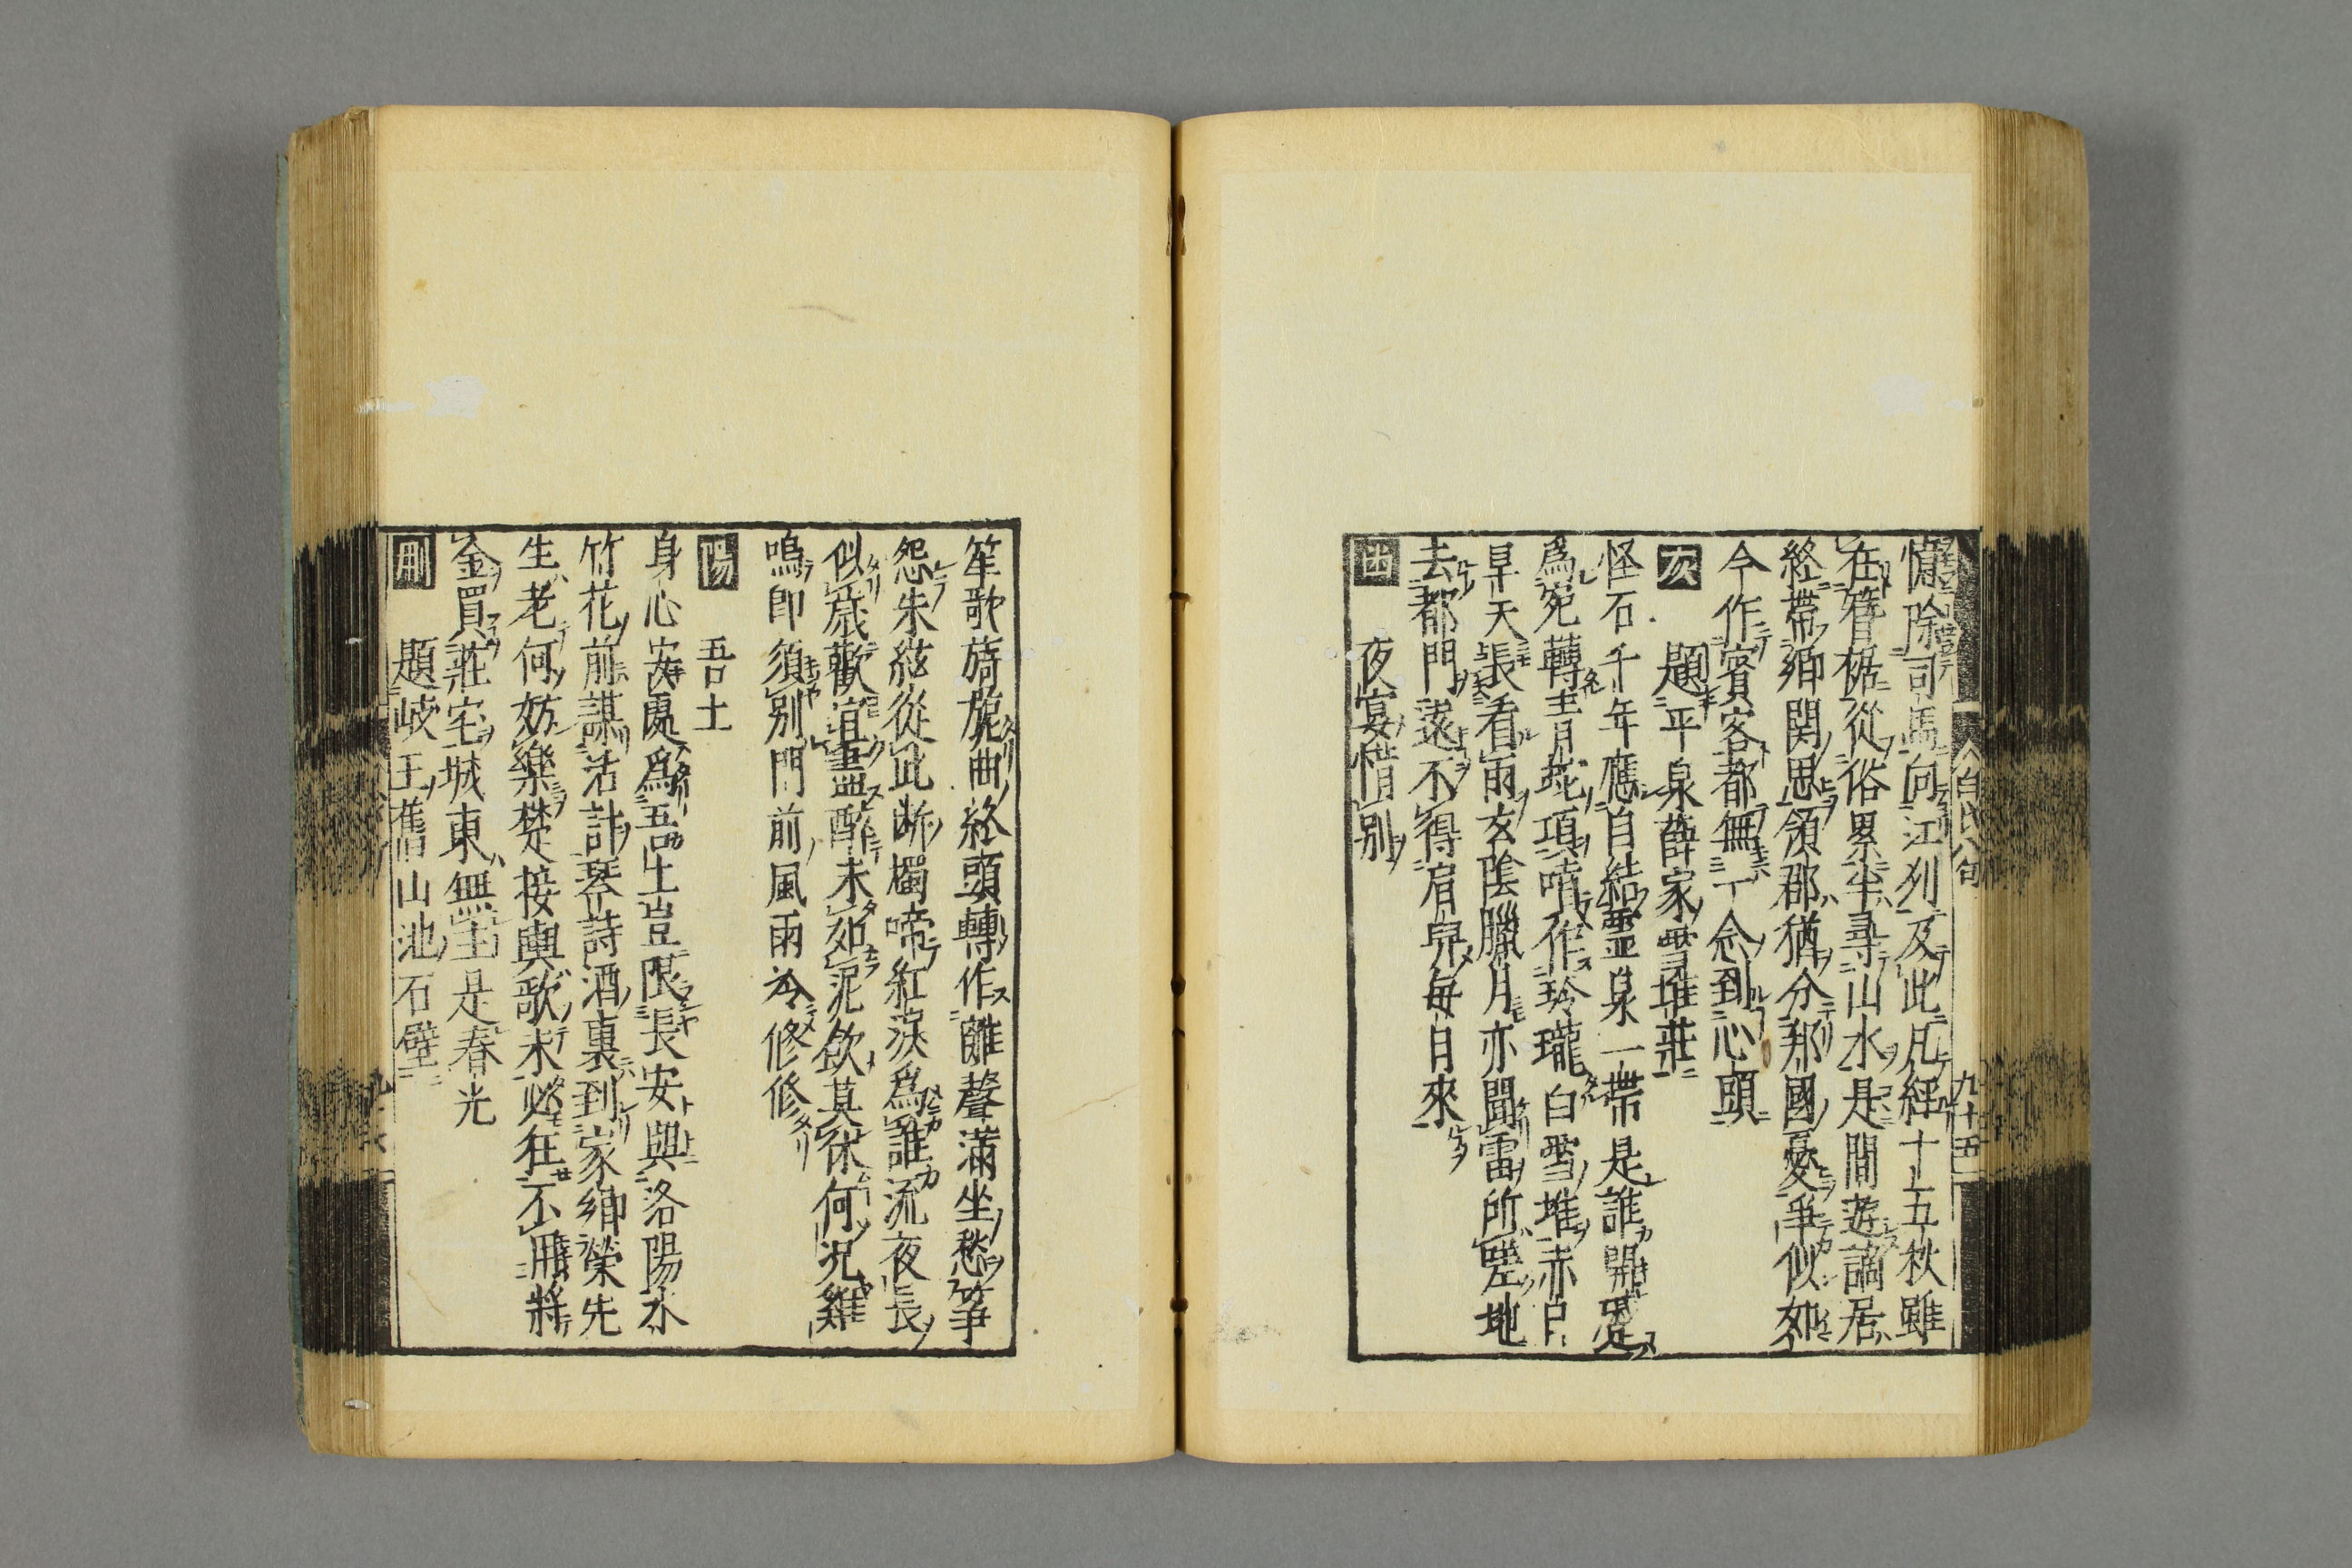 憶除司馬向江州及此凡經十五秋雖
在簪裾從俗累半尋山水是閒遊謫居
終帶鄉関思領郡猶分那國憂爭似如
今作賓客都無一念到心頭
題平泉薛家雪堆莊
怪石千年應自結靈泉一帶是誰開蹙
爲宛轉青蛇項噴作玲瓏白雪堆赤日
旱天長看雨玄陰臘月亦聞雷所嗟地
去都門遠不得肩舁每日來
夜宴惜別
白氏 九十五
笙歌旖旎曲終頭轉作離聲滿坐愁箏
怨朱絃從此断燭啼紅淚爲誰流夜長
似歲歡宜盡醉未如泥飲莫休何况雞
鳴即須別門前風雨冷修修
陽
吾土
身心安處爲吾土豈限長安與洛陽水
竹花前謀活計琴詩酒裏到家鄉榮先
生老何妨樂楚接輿歌未必狂不用將
金買莊宅城東無主是春光
題岐王舊山池石壁